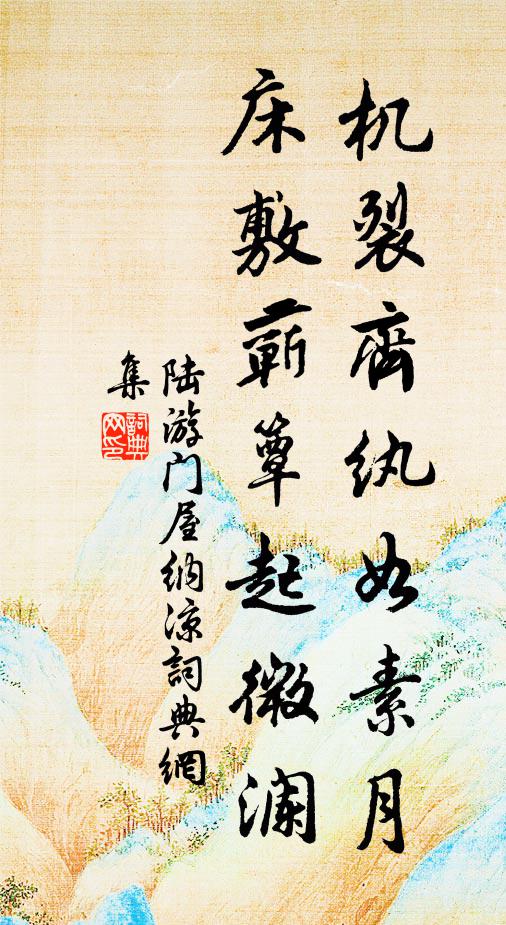 机裂齊纨如素月
床敷蕲簟起微澜
陆游门屋纳凉詞典網
集
詞典
网印